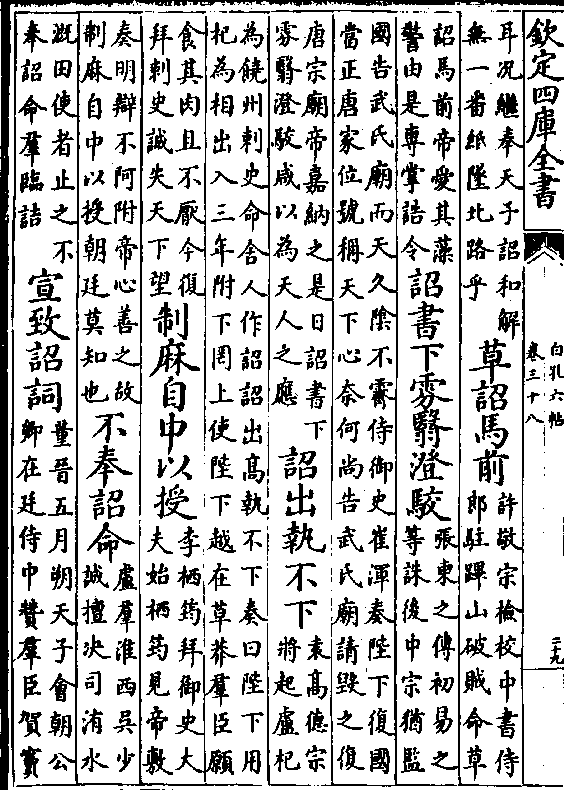 欽定四庫全書
白孔六帖
卷三十八
二十九
耳況繼奉天子詔和解
無一番紙墜北路乎
草詔馬前
許敬宗檢校中書侍
郎駐蹕山破賊命草
詔馬前帝愛其藻
警由是專掌誥令
詔書下雰翳澄駮
張柬之傳初易之
等誅後中宗猶監
國告武氏廟而天久陰不霽侍御史崔渾奏陛下復國
當正唐家位號稱天下心奈何尚告武氏廟請毀之復
唐宗廟帝嘉納之是日詔書下
雰翳澄駮咸以為天人之應
詔出執不下
袁高德宗
將起盧杞
為饒州刺史命舍人作詔詔出髙執不下奏曰陛下用
杞為相出入三年附下罔上使陛下越在草莽羣臣願
食其肉且不厭今復
拜刺史誠失天下望
制麻自中以授
李栖筠拜御史大
夫始栖筠見帝敷
奏明辯不阿附帝心善之故
制麻自中以授朝廷莫知也
不奉詔命
盧羣淮西吳少
誠擅决司洧水
溉田使者止之不
奉詔命羣臨詰
宣致詔詞
董晉五月朔天子會朝公
卿在廷侍中贊羣臣賀竇